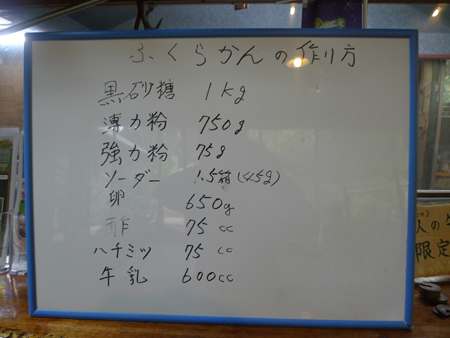 ふくらかんの作り方
黒砂糖 1kg
薄力粉 750g
強力粉 75g
ソーダー 1.5箱(45g)
卵 650g
酢 75cc
ハチミツ 75cc
牛乳 600cc
人の
限定